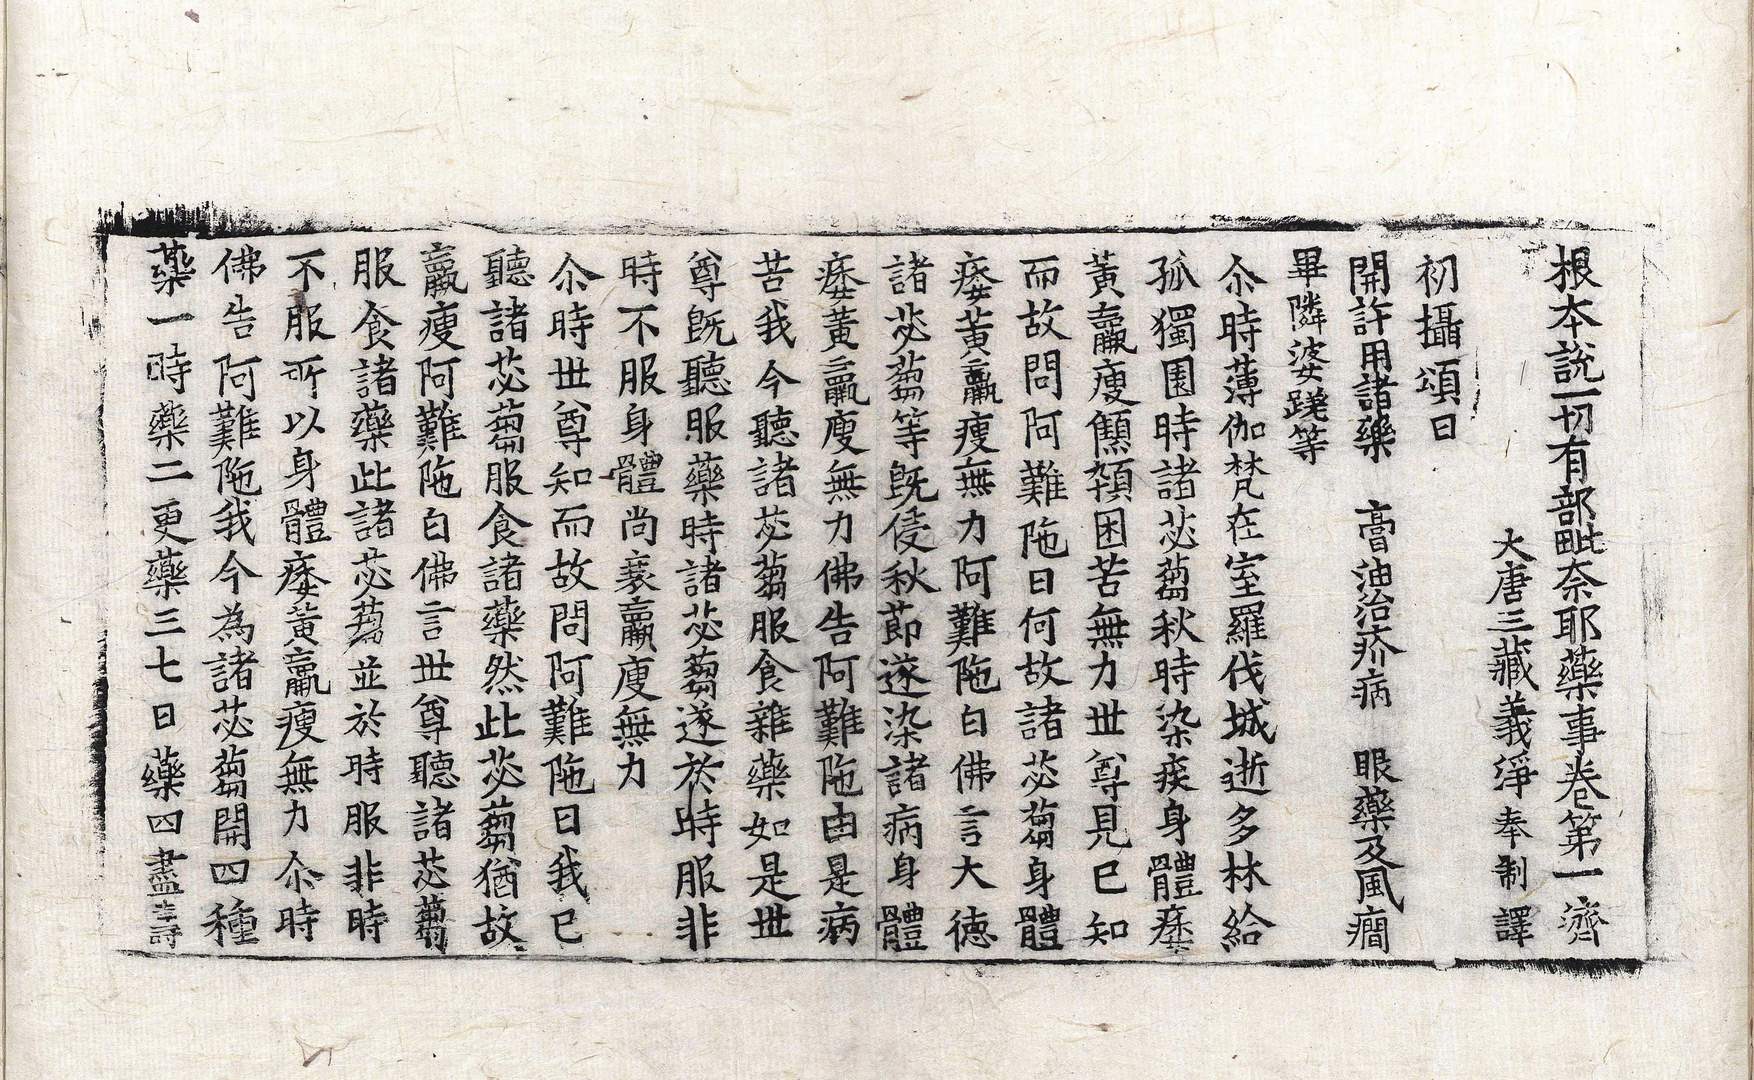 根本說一切有部毗奈耶藥事卷第一 濟
大唐三藏義淨奉制譯
初攝頌曰
開許用諸藥 膏油治疥病 眼藥及風癎
畢隣婆蹉等
尒時薄伽梵在室羅伐城逝多林給
孤獨園時諸苾蒭秋時染疾身體痿
黃羸瘦顦顇困苦無力世尊見已知
而故問阿難陁曰何故諸苾蒭身體
痿黃羸瘦無力阿難陁白佛言大德
諸苾蒭等旣侵秋節遂染諸病身體
痿黃羸瘦無力佛告阿難陁由是病
苦我今聽諸苾蒭服食雜藥如是世
尊旣聽服藥時諸苾蒭遂於時服非
時不服身體尚衰羸瘦無力
尒時世尊知而故問阿難陁曰我已
聽諸苾蒭服食諸藥然此苾蒭猶故
羸瘦阿難陁白佛言世尊聽諸苾蒭
服食諸藥此諸苾蒭並於時服非時
不服所以身體痿黃羸瘦無力尒時
佛告阿難陁我今為諸苾蒭開四種
藥一時藥二更藥三七日藥四盡壽